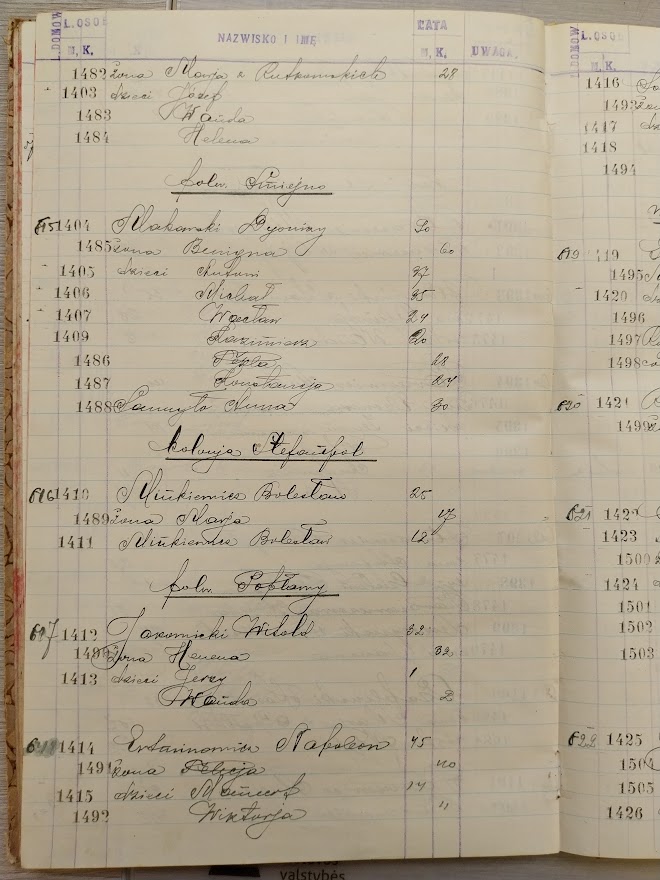 L. DOMÓW L. OSÓB NAZWISKO I IMĘ LATA UWAGA.
M. K. M. K.
1482 żona Marja z Rutkowskich 28
1403 dzieci Józef
1483 Wanda
1484 Helena
folw. Śmiejno
815 1404 Makarski Dyonizy 50
1485 żona Benigna 60
1405 dzieci Antoni 37
1406 Michał 35
1407 Wacław 24
1409 Kazimierz 20
1486 Tekla 28
1487 Konstancja 24
1488 Anna 30
kolonja Stefanpol
816 1410 Minkiewicz Bolesław 25
1489 żona Marja 17
1411 Minkiewicz Bolesław 12
folw. Popławy
817 1412 Witold 32
1490 żona Helena 32
1413 dzieci Jerzy 1
Wanda 2
1414 Napoleon 45
1491 żona Felicja 40
1415 dzieci 14
1492 Wiktorja 11
L. DOMÓW L. OSÓB
M. K.
1416
1493
1417
1418
1494
819 1419
1495
1420
1496
1497
1498
820 1421
1499
821 1422
1423
1500
1424
1501
1502
1503
822 1425
1504
1505
1426
valstybės